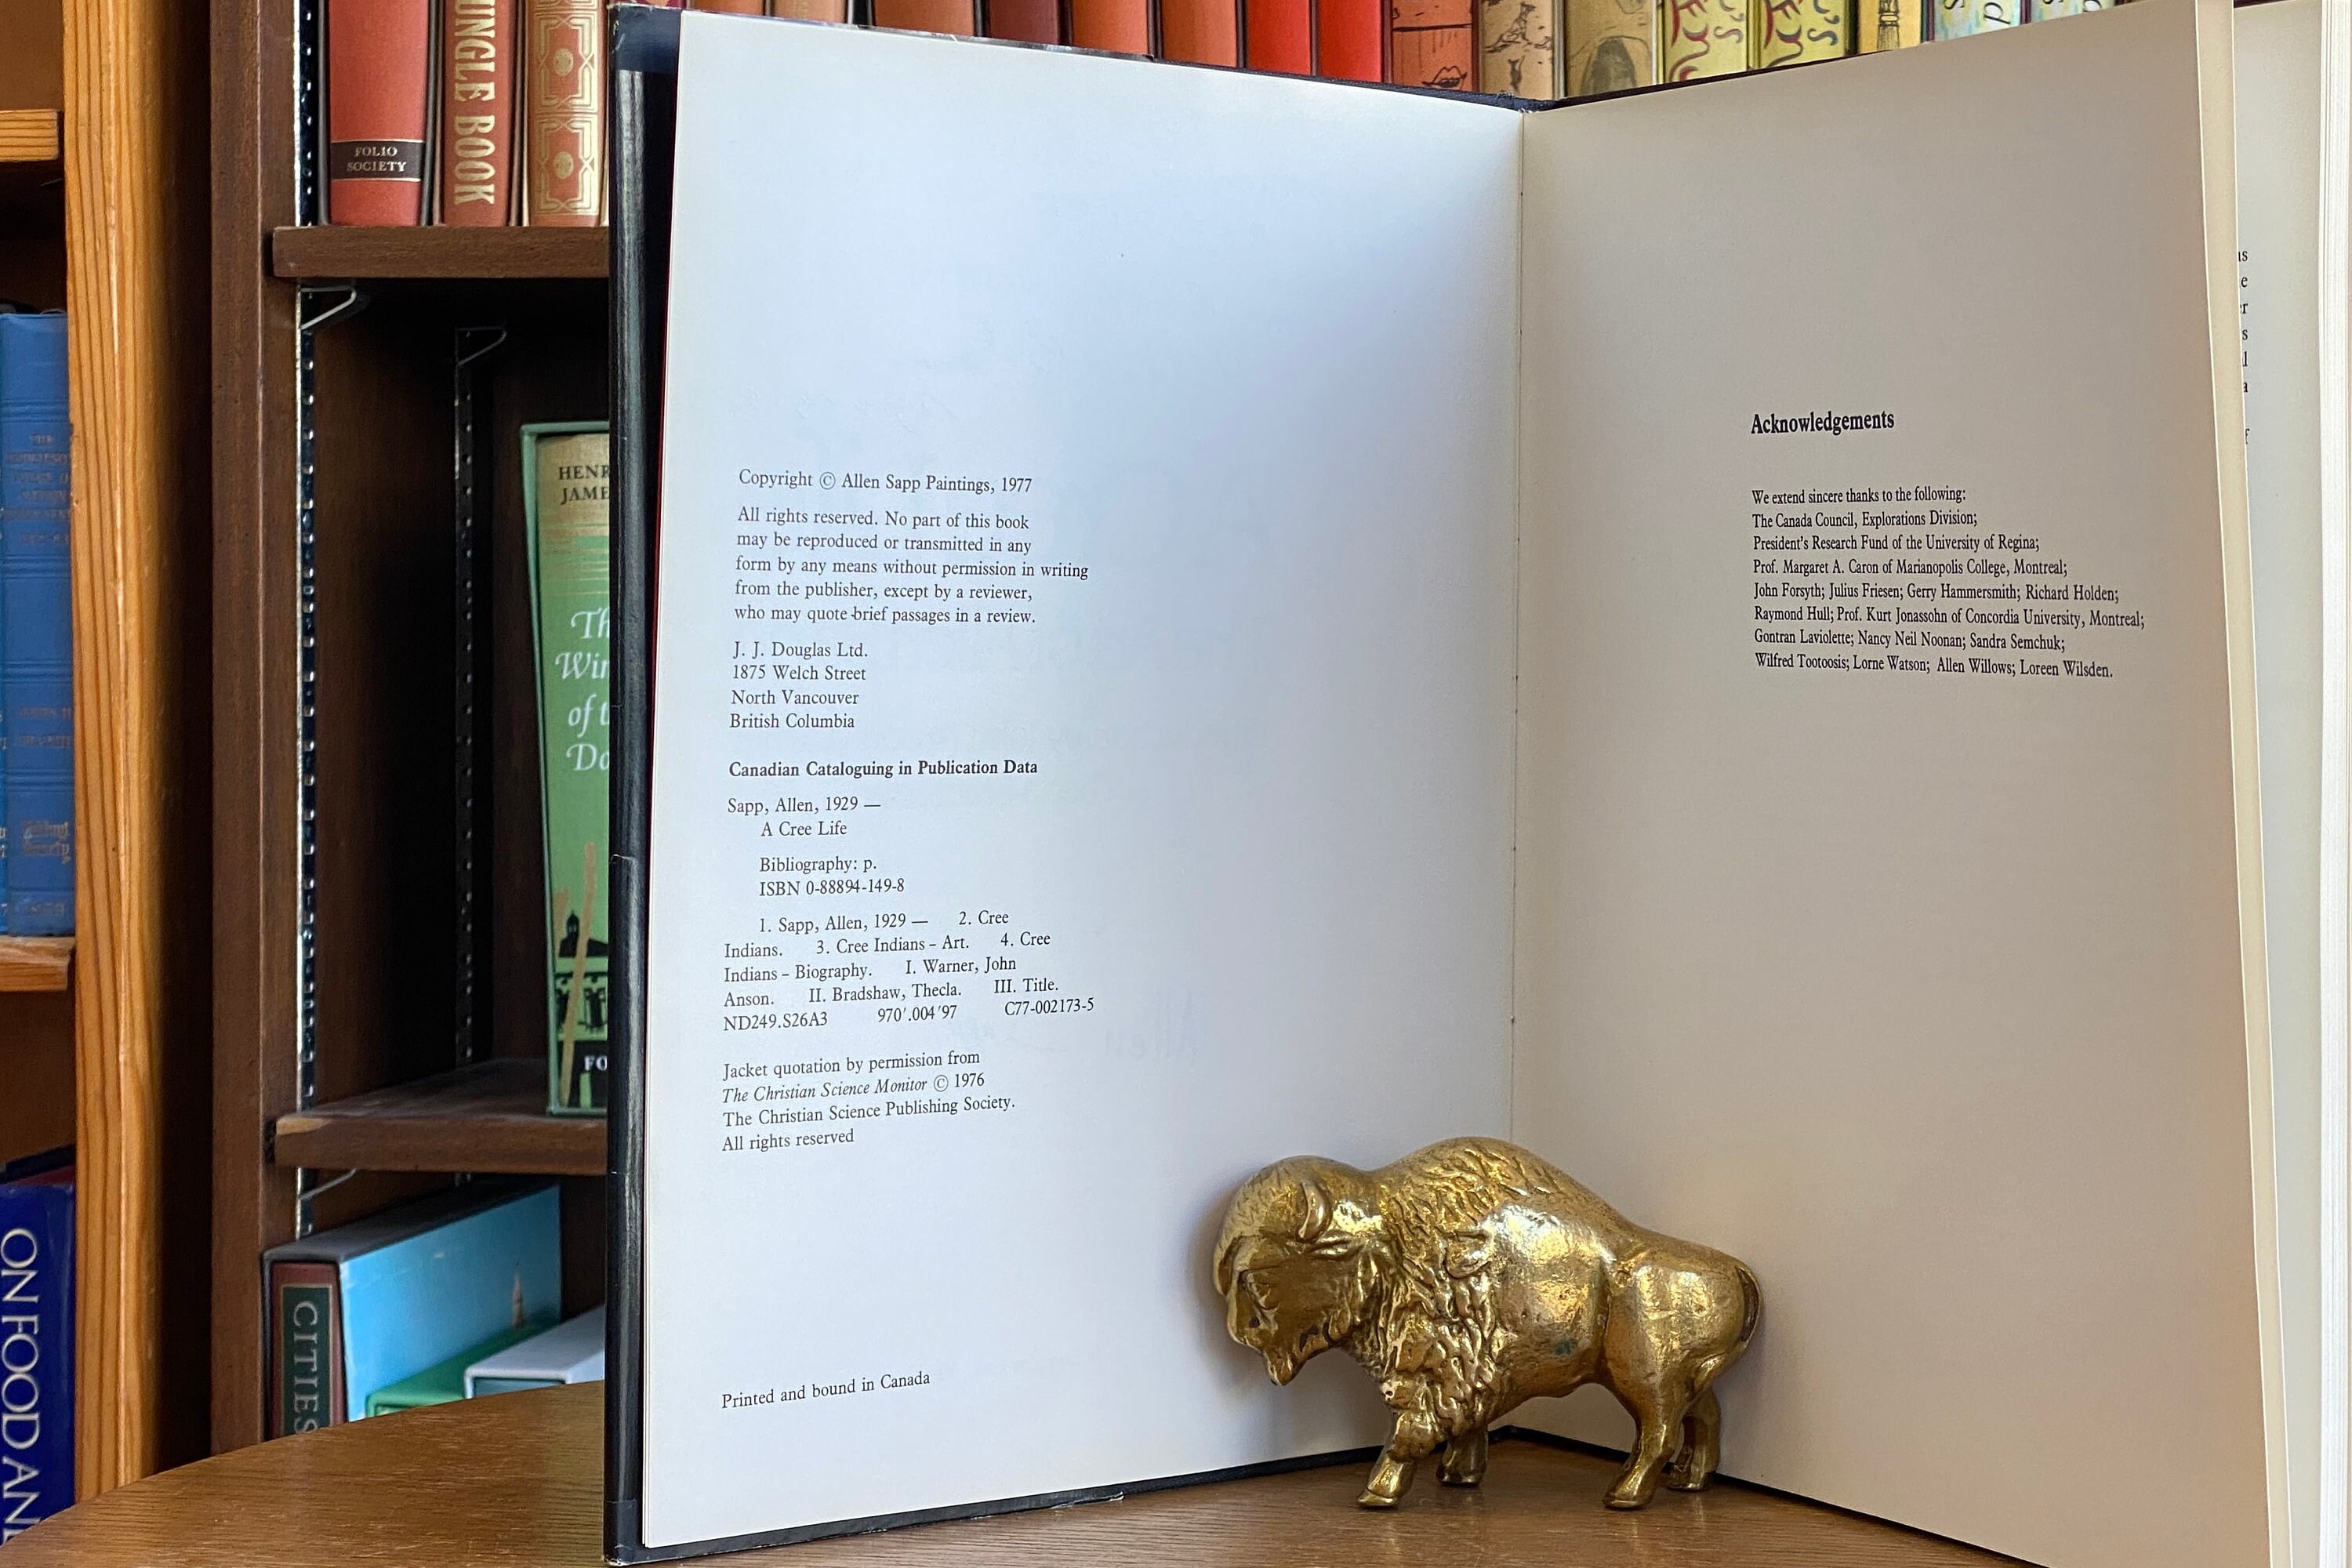 FOLIO
SOCIETY
UNGLE BOOK
HENR
JAME
Th
Win
of t
Do
FO
CITIES
ON FOOD AN
Copyright © Allen Sapp Paintings, 1977
All rights reserved. No part of this book
may be reproduced or transmitted in any
form by any means without permission in writing
from the publisher, except by a reviewer,
who may quote brief passages in a review.
J. J. Douglas Ltd.
1875 Welch Street
North Vancouver
British Columbia
Canadian Cataloguing in Publication Data
Sapp, Allen, 1929 —
A Cree Life
Bibliography: p.
ISBN 0-88894-149-8
1. Sapp, Allen, 1929 — 2. Cree
Indians. 3. Cree Indians – Art. 4. Cree
Indians – Biography. I. Warner, John
Anson. II. Bradshaw, Thecla. III. Title.
ND249.S26A3 970'.004'97 C77-002173-5
Jacket quotation by permission from
The Christian Science Monitor © 1976
The Christian Science Publishing Society.
All rights reserved
Printed and bound in Canada
Acknowledgements
We extend sincere thanks to the following:
The Canada Council, Explorations Division;
President's Research Fund of the University of Regina;
Prof. Margaret A. Caron of Marianopolis College, Montreal;
John Forsyth; Julius Friesen; Gerry Hammersmith; Richard Holden;
Raymond Hull; Prof. Kurt Jonassohn of Concordia University, Montreal;
Gontran Laviolette; Nancy Neil Noonan; Sandra Semchuk;
Wilfred Tootoosis; Lorne Watson; Allen Willows; Loreen Wilsden.